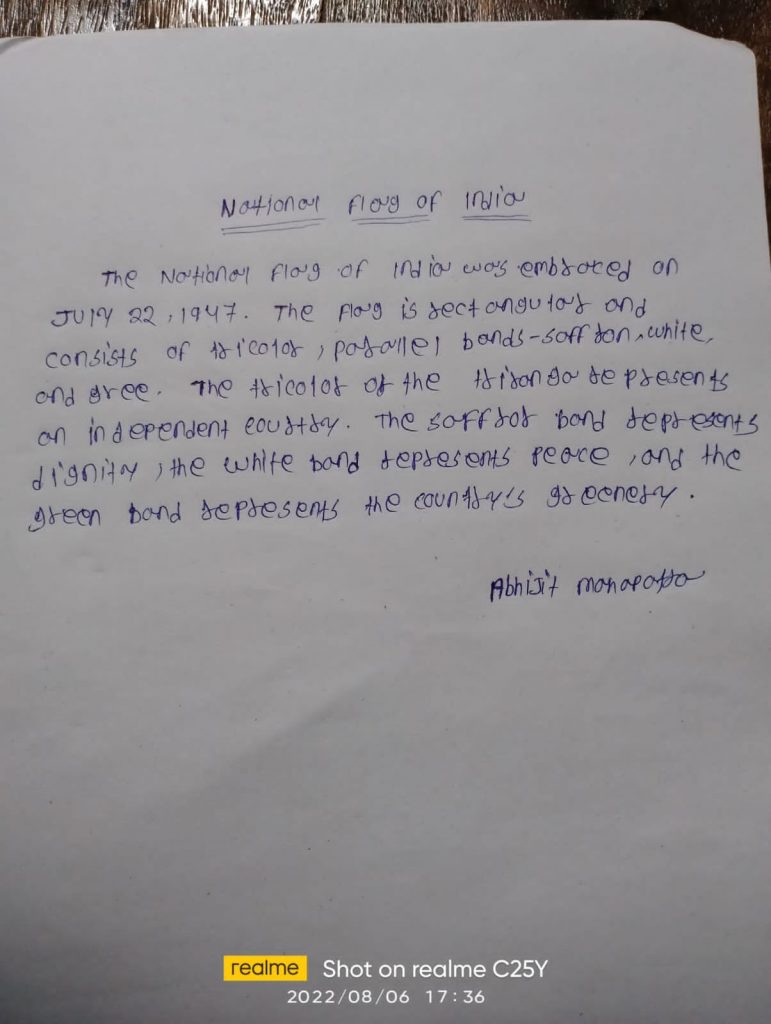 National Flag of India
The National Flag of India was embraced on
JULY 22, 1947. The Flag is rectangular and
consists of tricolor, parallel bands-saffron, white,
and gree. The tricolor of the tiranga represents
an independent coutry. The saffror band represents
dignity, the white band represents peace, and the
green band represents the country's greenery.
Abhijit mahapatra
realme Shot on realme C25Y
2022/08/06 17:36